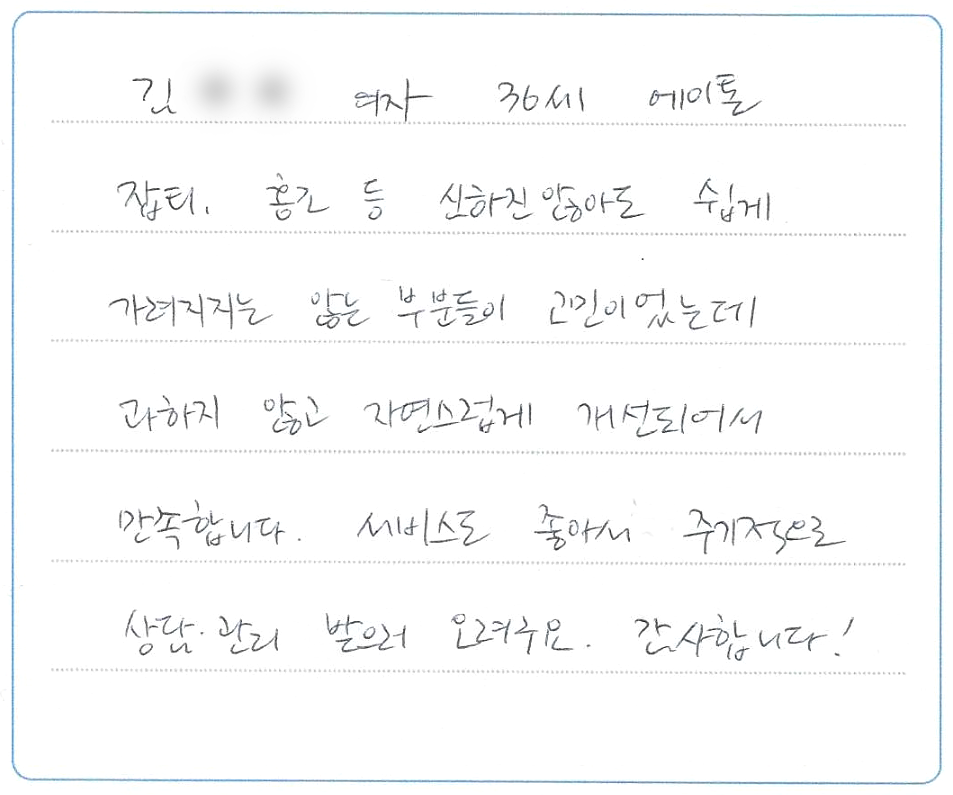 김 여자 36세 에이톤
잡티. 홍조 등 심하진 않아도 쉽게
가려지지는 않는 부분들이 고민이었는데
과하지 않고 자연스럽게 개선되어서
만족합니다. 서비스도 좋아서 주기적으로
상담·관리 받으러 오려구요. 감사합니다!